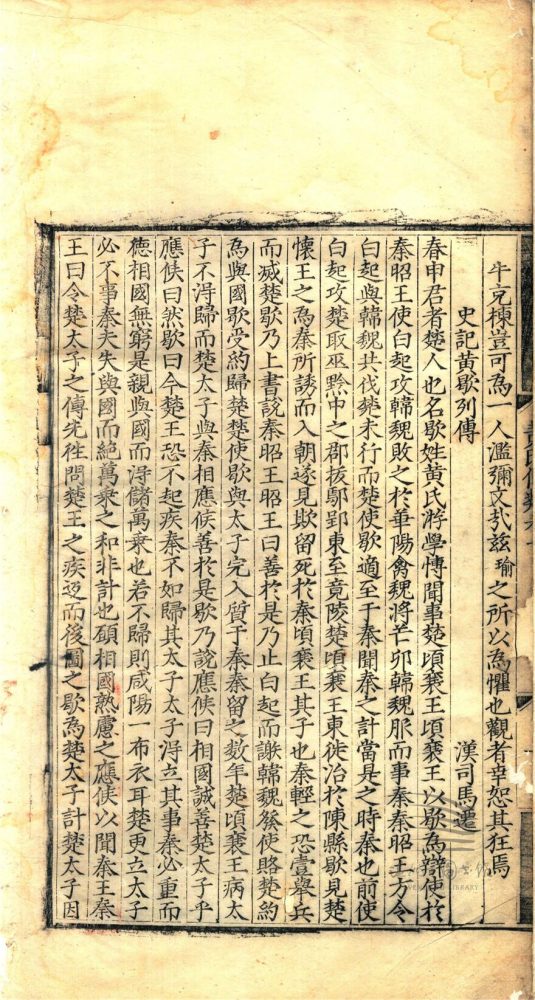 牛充棟豈可為一人濫彌文㢤兹瑜之所以為懼也觀者幸恕其狂焉
史記黄歇列傳 漢司馬遷
春申君者楚人也名歇姓黄氏游學博聞事楚頃襄王頃襄王以歇為辯使於
秦昭王使白起攻韓魏敗之於華陽禽魏將芒卯韓魏服而事秦秦昭王方令
白起與韓魏共伐楚未行而楚使歇適至于秦聞秦之計當是之時秦也前使
白起攻楚取巫黔中之郡抜鄢郢東至竟陵楚頃襄王東徙治於陳縣歇見楚
懷王之為秦所誘而入朝遂見欺留死於秦頃襄王其子也秦輕之恐壹舉兵
而滅楚歇乃上書說秦昭王昭王曰善於是乃止白起而謝韓魏發使賂楚約
為與國歇受約歸楚楚使歇與太子完入質于秦秦留之数年楚頃襄王病太
子不淂歸而楚太子與秦相應侯善於是歇乃說應侯曰相國誠善楚太子乎
應侯曰然歇曰今楚王恐不起疾秦不如歸其太子太子淂立其事秦必重而
徳相國無窮是親與國而淂儲萬乗也若不歸則咸陽一布衣耳楚更立太子
必不事秦夫失與國而絶萬乗之和非計也願相國熟慮之應侯以聞秦王秦
王曰令楚太子之傅先徃問楚王之疾返而後圖之歇為楚太子計楚太子因